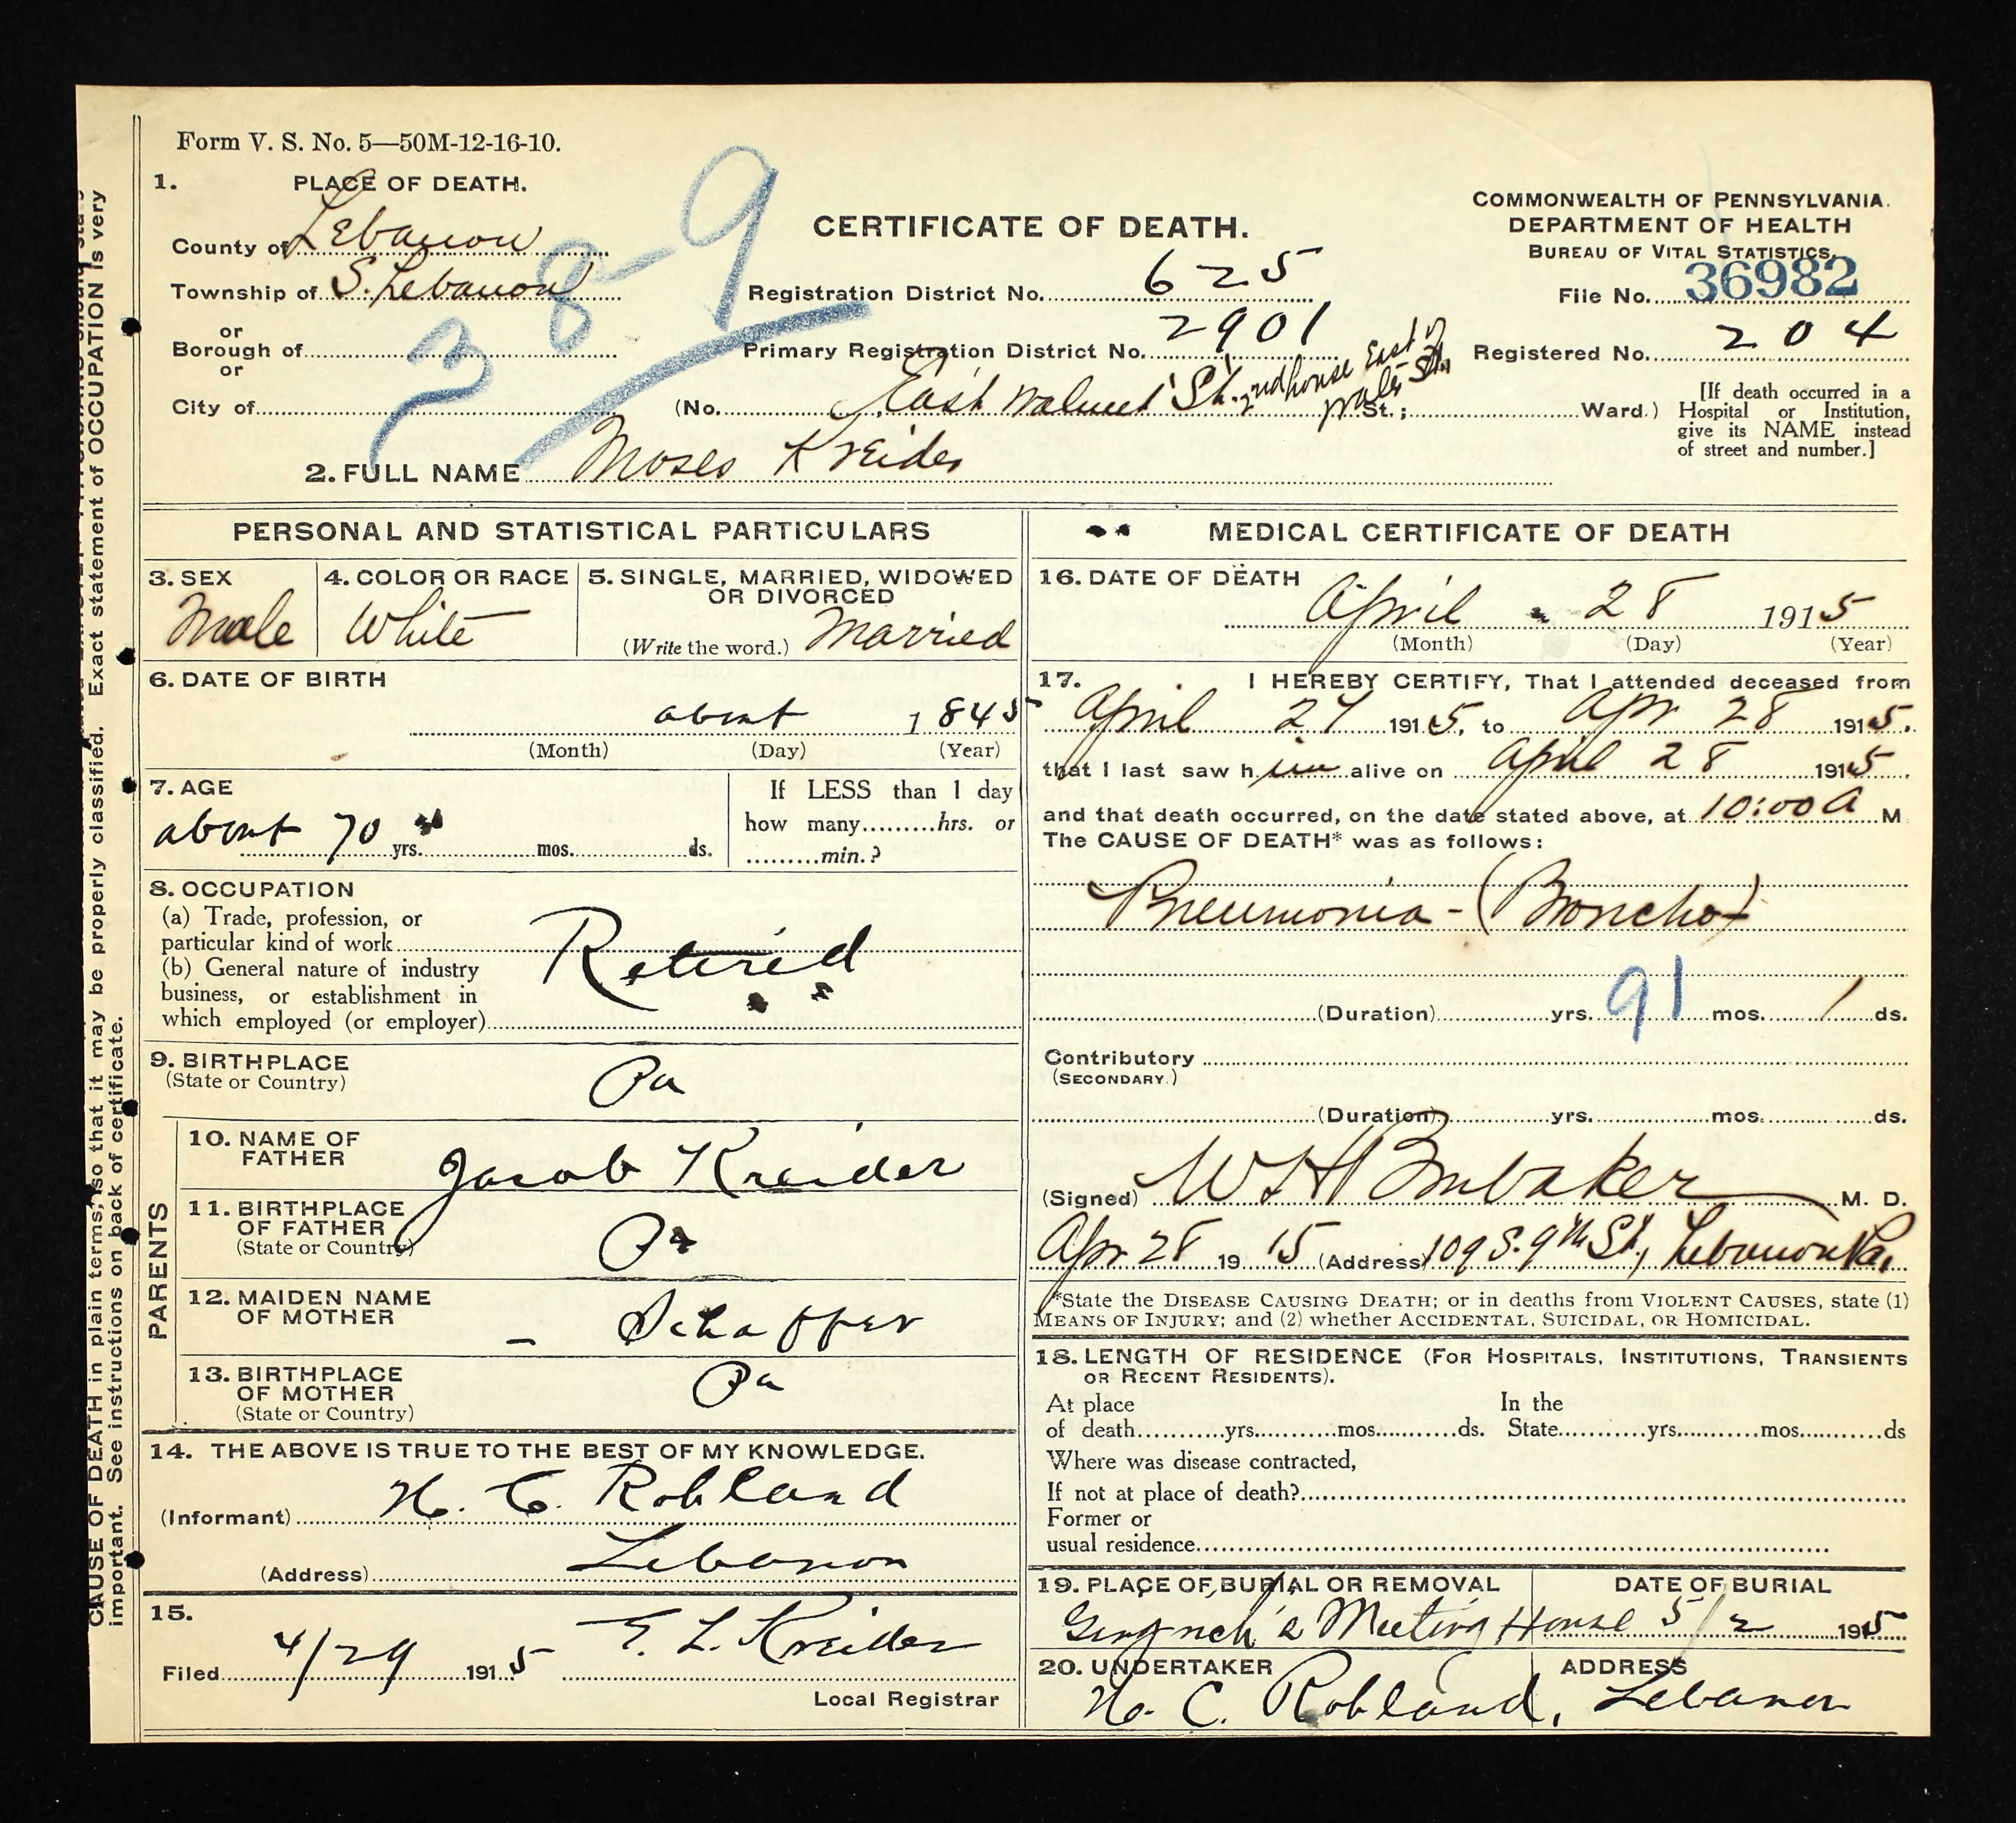 Form V. S. No. 5—50M-12-16-10.
1. PLACE OF DEATH.
County of Lebanon
Township of S. Lebanon
or
Borough of
or
City of
3 8-9
CERTIFICATE OF DEATH.
Registration District No. 625
Primary Registration District No. 2901
(No. East Walnut St. 2nd house East of St.; Ward.)
COMMONWEALTH OF PENNSYLVANIA.
DEPARTMENT OF HEALTH
BUREAU OF VITAL STATISTICS.
File No. 36982
Registered No. 204
[If death occurred in a
Hospital or Institution,
give its NAME instead
of street and number.]
2. FULL NAME Moses Kreider
CAUSE OF DEATH in plain terms, so that it may be properly classified. Exact statement of OCCUPATION is very
important. See instructions on back of certificate.
PERSONAL AND STATISTICAL PARTICULARS
3. SEX
Male
4. COLOR OR RACE
White
5. SINGLE, MARRIED, WIDOWED
OR DIVORCED
(Write the word.) Married
6. DATE OF BIRTH
about 1845
(Month) (Day) (Year)
7. AGE
about 70 yrs. mos. ds.
If LESS than 1 day
how many hrs. or
min.?
8. OCCUPATION
(a) Trade, profession, or
particular kind of work
(b) General nature of industry
business, or establishment in
which employed (or employer)
Retired
9. BIRTHPLACE
(State or Country)
Pa
PARENTS
10. NAME OF
FATHER
Jacob Kreider
11. BIRTHPLACE
OF FATHER
(State or Country)
Pa
12. MAIDEN NAME
OF MOTHER
- Schaffer
13. BIRTHPLACE
OF MOTHER
(State or Country)
Pa
14. THE ABOVE IS TRUE TO THE BEST OF MY KNOWLEDGE.
(Informant) H. C. Rohland
(Address) Lebanon
15.
Filed 4/29 1915 E. L. Kreider
Local Registrar
MEDICAL CERTIFICATE OF DEATH
16. DATE OF DEATH
April 28 1915
(Month) (Day) (Year)
17. I HEREBY CERTIFY, That I attended deceased from
April 27 1915, to Apr 28 1915.
that I last saw him alive on April 28 1915.
and that death occurred, on the date stated above, at 10:00 A M
The CAUSE OF DEATH* was as follows:
Pneumonia - (Broncho)
(Duration) yrs. 91 mos. 1 ds.
Contributory
(SECONDARY.)
(Duration) yrs. mos. ds.
(Signed) W H Brubaker M. D.
Apr 28 1915 (Address) 109 S. 9th St., Lebanon Pa.
*State the DISEASE CAUSING DEATH; or in deaths from VIOLENT CAUSES, state (1)
MEANS OF INJURY; and (2) whether ACCIDENTAL, SUICIDAL, OR HOMICIDAL.
18. LENGTH OF RESIDENCE (FOR HOSPITALS, INSTITUTIONS, TRANSIENTS
OR RECENT RESIDENTS).
At place In the
of death yrs. mos. ds. State yrs. mos. ds
Where was disease contracted,
If not at place of death?
Former or
usual residence
19. PLACE OF BURIAL OR REMOVAL DATE OF BURIAL
Gingrich's Meeting House 5/2 1915
20. UNDERTAKER ADDRESS
H. C. Rohland, Lebanon